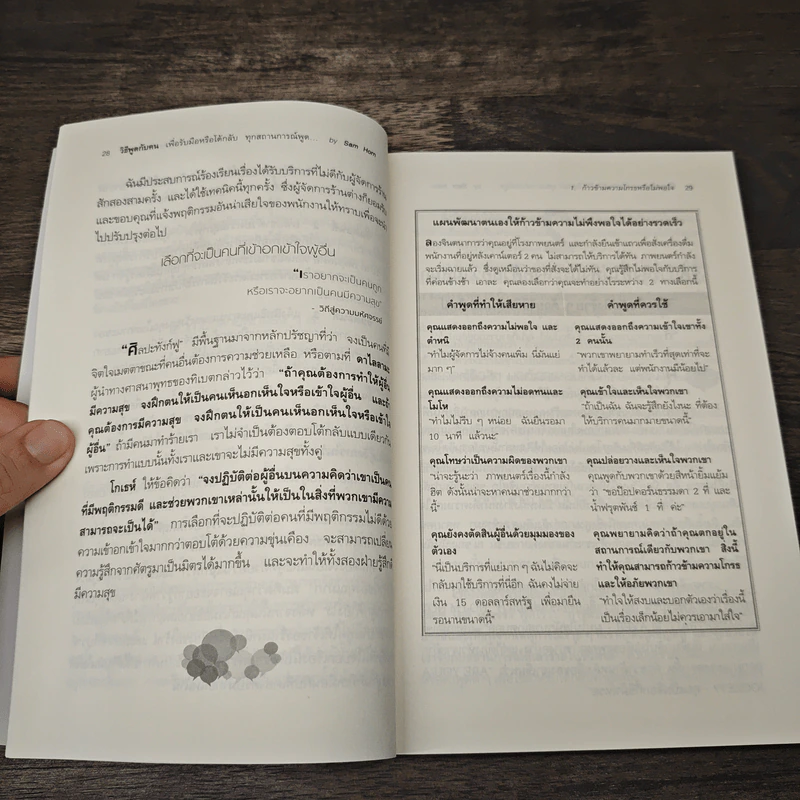 28 วิธีพูดกับคน เพื่อรับมือหรือโต้กลับ ทุกสถานการณ์พูด... by Sam Horn
ฉันมีประสบการณ์ร้องเรียนเรื่องได้รับบริการที่ไม่ดีกับผู้จัดการร้าน
สักสองสามครั้ง และได้ใช้เทคนิคนี้ทุกครั้ง ซึ่งผู้จัดการร้านต่างก็
และขอบคุณที่แจ้งพฤติกรรมอันน่าเสียใจของพนักงานให้ทราบเพื่อจะ
ไปปรับปรุงต่อไป
เลือกที่จะเป็นคนที่เข้าอกเข้าใจผู้อื่น
"เราอยากจะเป็นคนถูก
หรือเราจะอยากเป็นคนมีความสุข"
- วิถีสู่ความมหัศจรรย์
"ศิลปะทังก์ฟู" มีพื้นฐานมาจากหลักปรัชญาที่ว่า จงเป็นคนที่
จิตใจเมตตาขณะที่คนอื่นต้องการความช่วยเหลือ หรือตามที่ ดาไลลามะ
ผู้นำทางศาสนาพุทธของทิเบตกล่าวไว้ว่า "ถ้าคุณต้องการทำให้ผู้อื่น
มีความสุข จงฝึกตนให้เป็นคนเห็นอกเห็นใจหรือเข้าใจผู้อื่น และถ้า
คุณต้องการมีความสุข จงฝึกตนให้เป็นคนเห็นอกเห็นใจหรือเข้าใจ
ผู้อื่น" ถ้ามีคนมาทำร้ายเรา เราไม่จำเป็นต้องตอบโต้กลับแบบเดียวกัน
เพราะการทำแบบนั้นทั้งเราและเขาจะไม่มีความสุขทั้งคู่
โกเธห์ ให้ข้อคิดว่า "จงปฏิบัติต่อผู้อื่นบนความคิดว่าเขาเป็นคน
ที่มีพฤติกรรมดี และช่วยพวกเขาเหล่านั้นให้เป็นในสิ่งที่พวกเขามีความ
สามารถจะเป็นได้" การเลือกที่จะปฏิบัติต่อคนที่มีพฤติกรรมไม่ดีด้วย
ความเข้าอกเข้าใจมากกว่าตอบโต้ด้วยความขุ่นเคือง จะสามารถเปลี่ยน
ความรู้สึกจากศัตรูมาเป็นมิตรได้มากขึ้น และจะทำให้ทั้งสองฝ่ายรู้สึก
มีความสุข
1. ก้าวข้ามความโกรธหรือไม่พอใจ 29
แผนพัฒนาตนเองให้ก้าวข้ามความไม่พึงพอใจได้อย่างรวดเร็ว
ลองจินตนาการว่าคุณอยู่ที่โรงภาพยนตร์ และกำลังยืนเข้าแถวเพื่อสั่งเครื่องดื่ม
พนักงานที่อยู่หลังเคาน์เตอร์ 2 คน ไม่สามารถให้บริการได้ทัน ภาพยนตร์กำลัง
จะเริ่มฉายแล้ว ซึ่งดูเหมือนว่าของที่สั่งจะได้ไม่ทัน คุณรู้สึกไม่พอใจกับบริการ
ที่ค่อนข้างช้า เอาละ คุณลองเลือกว่าคุณจะทำอย่างไรระหว่าง 2 ทางเลือกนี้
คำพูดที่ทำให้เสียหาย คำพูดที่ควรใช้
คุณแสดงออกถึงความไม่พอใจ และ
ตำหนิ
"ทำไมผู้จัดการไม่จ้างคนเพิ่ม นี่มันแย่
มาก ๆ"
คุณแสดงออกถึงความเข้าใจเขาทั้ง
2 คนนั้น
"พวกเขาพยายามทำเร็วที่สุดเท่าที่จะ
ทำได้แล้วละ แต่พนักงานมีน้อยไป"
คุณแสดงออกถึงความไม่อดทนและ
โมโห
"ทำไมไม่รีบ ๆ หน่อย ฉันยืนรอมา
10 นาที แล้วนะ"
คุณเข้าใจและเห็นใจพวกเขา
"ถ้าเป็นฉัน ฉันจะรู้สึกยังไงนะ ที่ต้อง
ให้บริการคนมากมายขนาดนี้"
คุณโทษว่าเป็นความผิดของพวกเขา
"น่าจะรู้นะว่า ภาพยนตร์เรื่องนี้กำลัง
ฮิต ดังนั้นน่าจะหาคนมาช่วยมากกว่า
นี้"
คุณปล่อยวางและเห็นใจพวกเขา
คุณพูดกับพวกเขาด้วยสีหน้ายิ้มแย้ม
ว่า "ขอป๊อปคอร์นธรรมดา 2 ที่ และ
น้ำฟรุตพันช์ 1 ที่ ค่ะ"
คุณยังคงตัดสินผู้อื่นด้วยมุมมองของ
ตัวเอง
"นี่เป็นบริการที่แย่มาก ๆ ฉันไม่คิดจะ
กลับมาใช้บริการที่นี่อีก ฉันคงไม่จ่าย
เงิน 15 ดอลลาร์สหรัฐ เพื่อมายืน
รอนานขนาดนี้"
คุณพยายามคิดว่าถ้าคุณตกอยู่ใน
สถานการณ์เดียวกับพวกเขา สิ่งนี้
ทำให้คุณสามารถก้าวข้ามความโกรธ
และให้อภัยพวกเขา
"ทำใจให้สงบและบอกตัวเองว่าเรื่องนี้
เป็นเรื่องเล็กน้อยไม่ควรเอามาใส่ใจ"